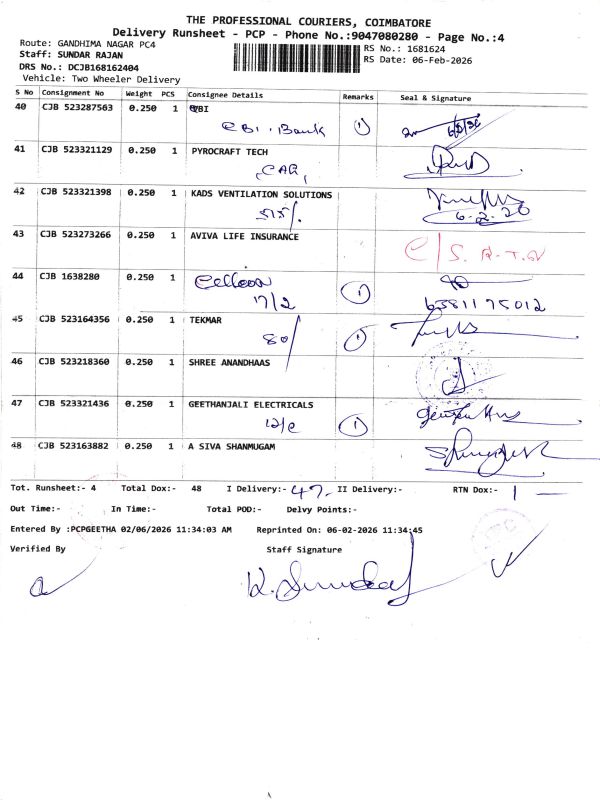 THE PROFESSIONAL COURIERS, COIMBATORE
Delivery Runsheet - PCP - Phone No.:9047080280 - Page No.:4
Route: GANDHIMA NAGAR PC4
RS No.: 1681624
Staff: SUNDAR RAJAN
RS Date: 06-Feb-2026
DRS No.: DCJB168162404
Vehicle: Two Wheeler Delivery
S No Consignment No Weight PCS Consignee Details Remarks Seal & Signature
40 CJB 523287563 0.250 1 CBI
CBI. Bank 1
41 CJB 523321129 0.250 1 PYROCRAFT TECH
42 CJB 523321398 0.250 1 KADS VENTILATION SOLUTIONS
6.2.26
43 CJB 523273266 0.250 1 AVIVA LIFE INSURANCE
C/S. R.T.N
44 CJB 1638280 0.250 1
17/2 1 6381175012
45 CJB 523164356 0.250 1 TEKMAR
80/ 1
46 CJB 523218360 0.250 1 SHREE ANANDHAAS
47 CJB 523321436 0.250 1 GEETHANJALI ELECTRICALS
12/c 1
48 CJB 523163882 0.250 1 A SIVA SHANMUGAM
Tot. Runsheet:- 4 Total Dox:- 48 I Delivery:- 47- II Delivery:- RTN Dox:- 1 -
Out Time:- In Time:- Total POD:- Delvy Points:-
Entered By :PCPGEETHA 02/06/2026 11:34:03 AM Reprinted On: 06-02-2026 11:34:45
Verified By Staff Signature